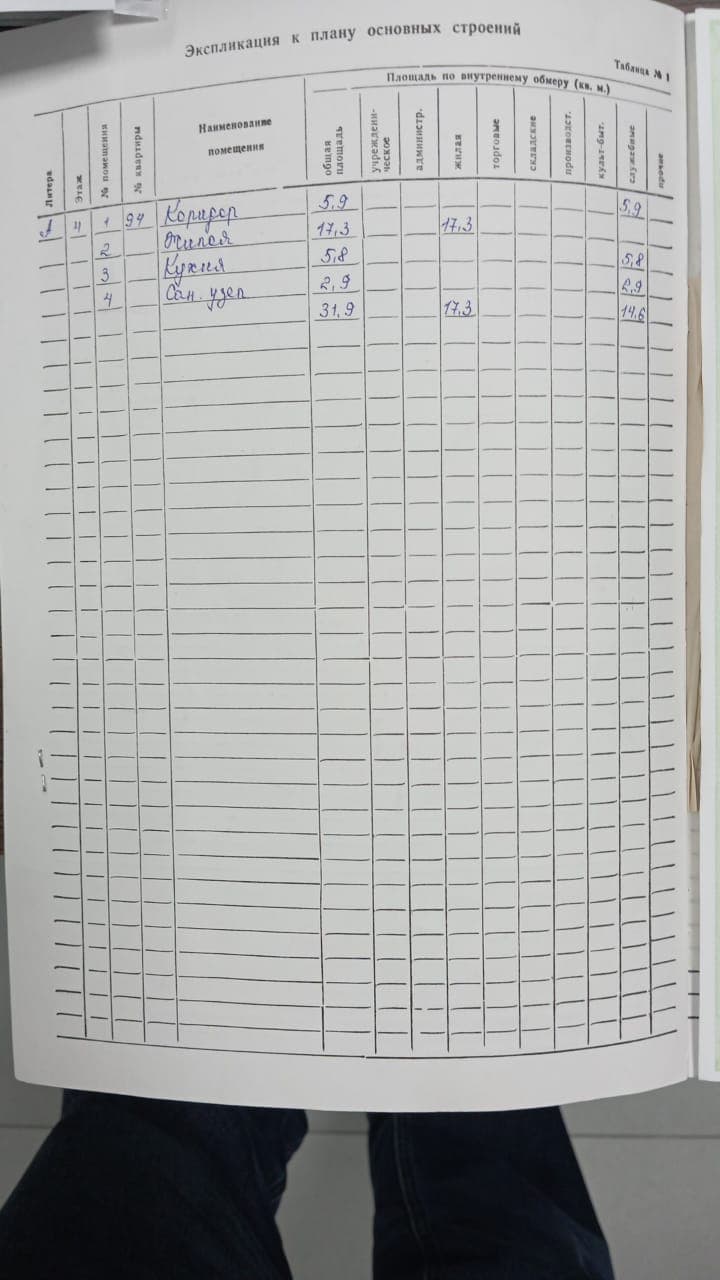 Экспликация к плану основных строений
Таблица № 1
Площадь по внутреннему обмеру (кв. м.)
Литера Этаж № помещения № квартиры Наименование помещения общая площадь учрежденическое администр. жилая торговые складские производст. культ-быт. служебные прочие
А 4 1 94 Коридор 5,9 5,9
2 Жилая 17,3 17,3
3 Кухня 5,8 5,8
4 Сан. узел 2,9 2,9
31,9 17,3 14,6